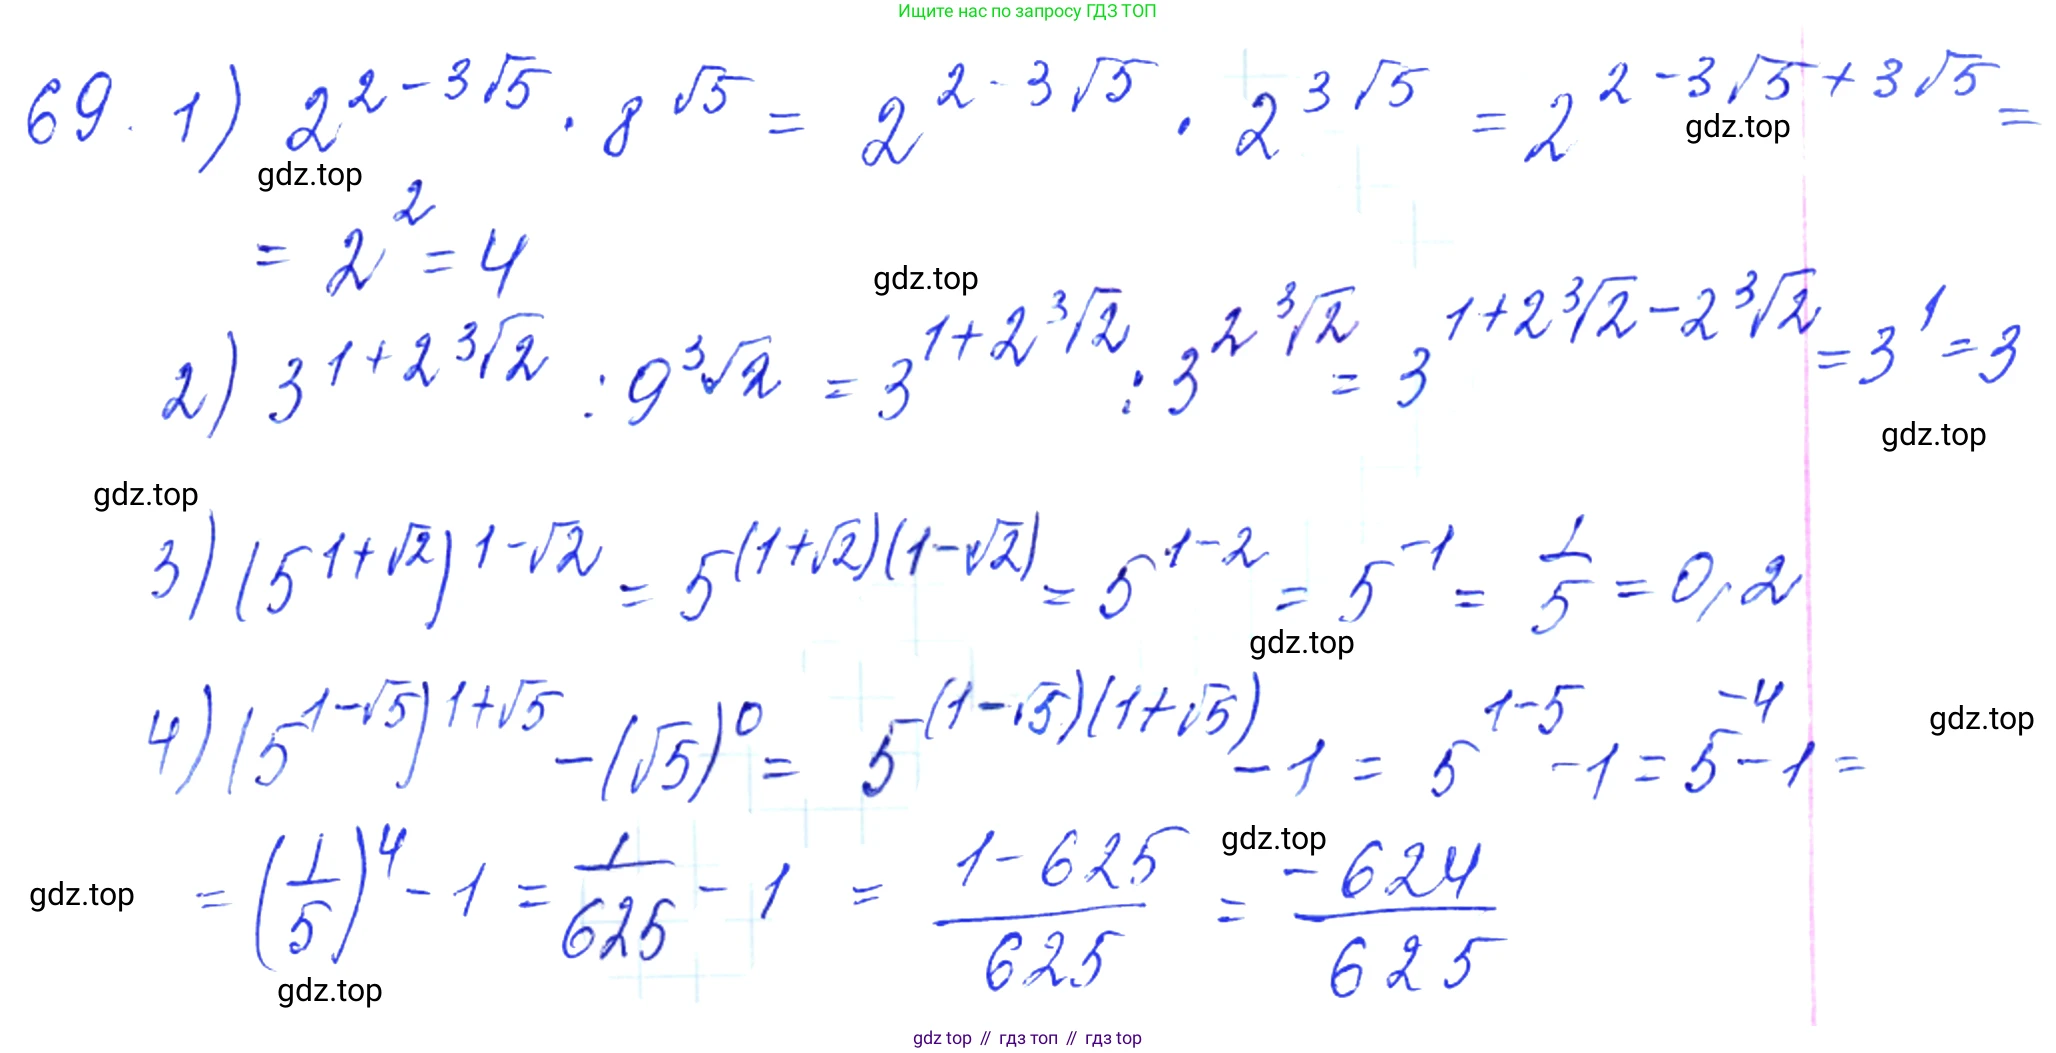 Ищите нас по запросу ГДЗ ТОП
69. 1) 2^(2-3√5) · 8^(√5) = 2^(2-3√5) · 2^(3√5) = 2^(2-3√5+3√5) =
gdz.top
gdz.top
= 2^2 = 4
gdz.top
2) 3^(1+2∛2) : 9^(∛2) = 3^(1+2∛2) : 3^(2∛2) = 3^(1+2∛2-2∛2) = 3^1 = 3
gdz.top
gdz.top
3) (5^(1+√2))^(1-√2) = 5^((1+√2)(1-√2)) = 5^(1-2) = 5^(-1) = 1/5 = 0,2
gdz.top
4) (5^(1-√5))^(1+√5) - (√5)^0 = 5^((1-√5)(1+√5)) - 1 = 5^(1-5) - 1 = 5^(-4) - 1 =
gdz.top
gdz.top
= (1/5)^4 - 1 = 1/625 - 1 = (1-625)/625 = -624/625
gdz.top
gdz.top
gdz top // гдз топ // гдз top